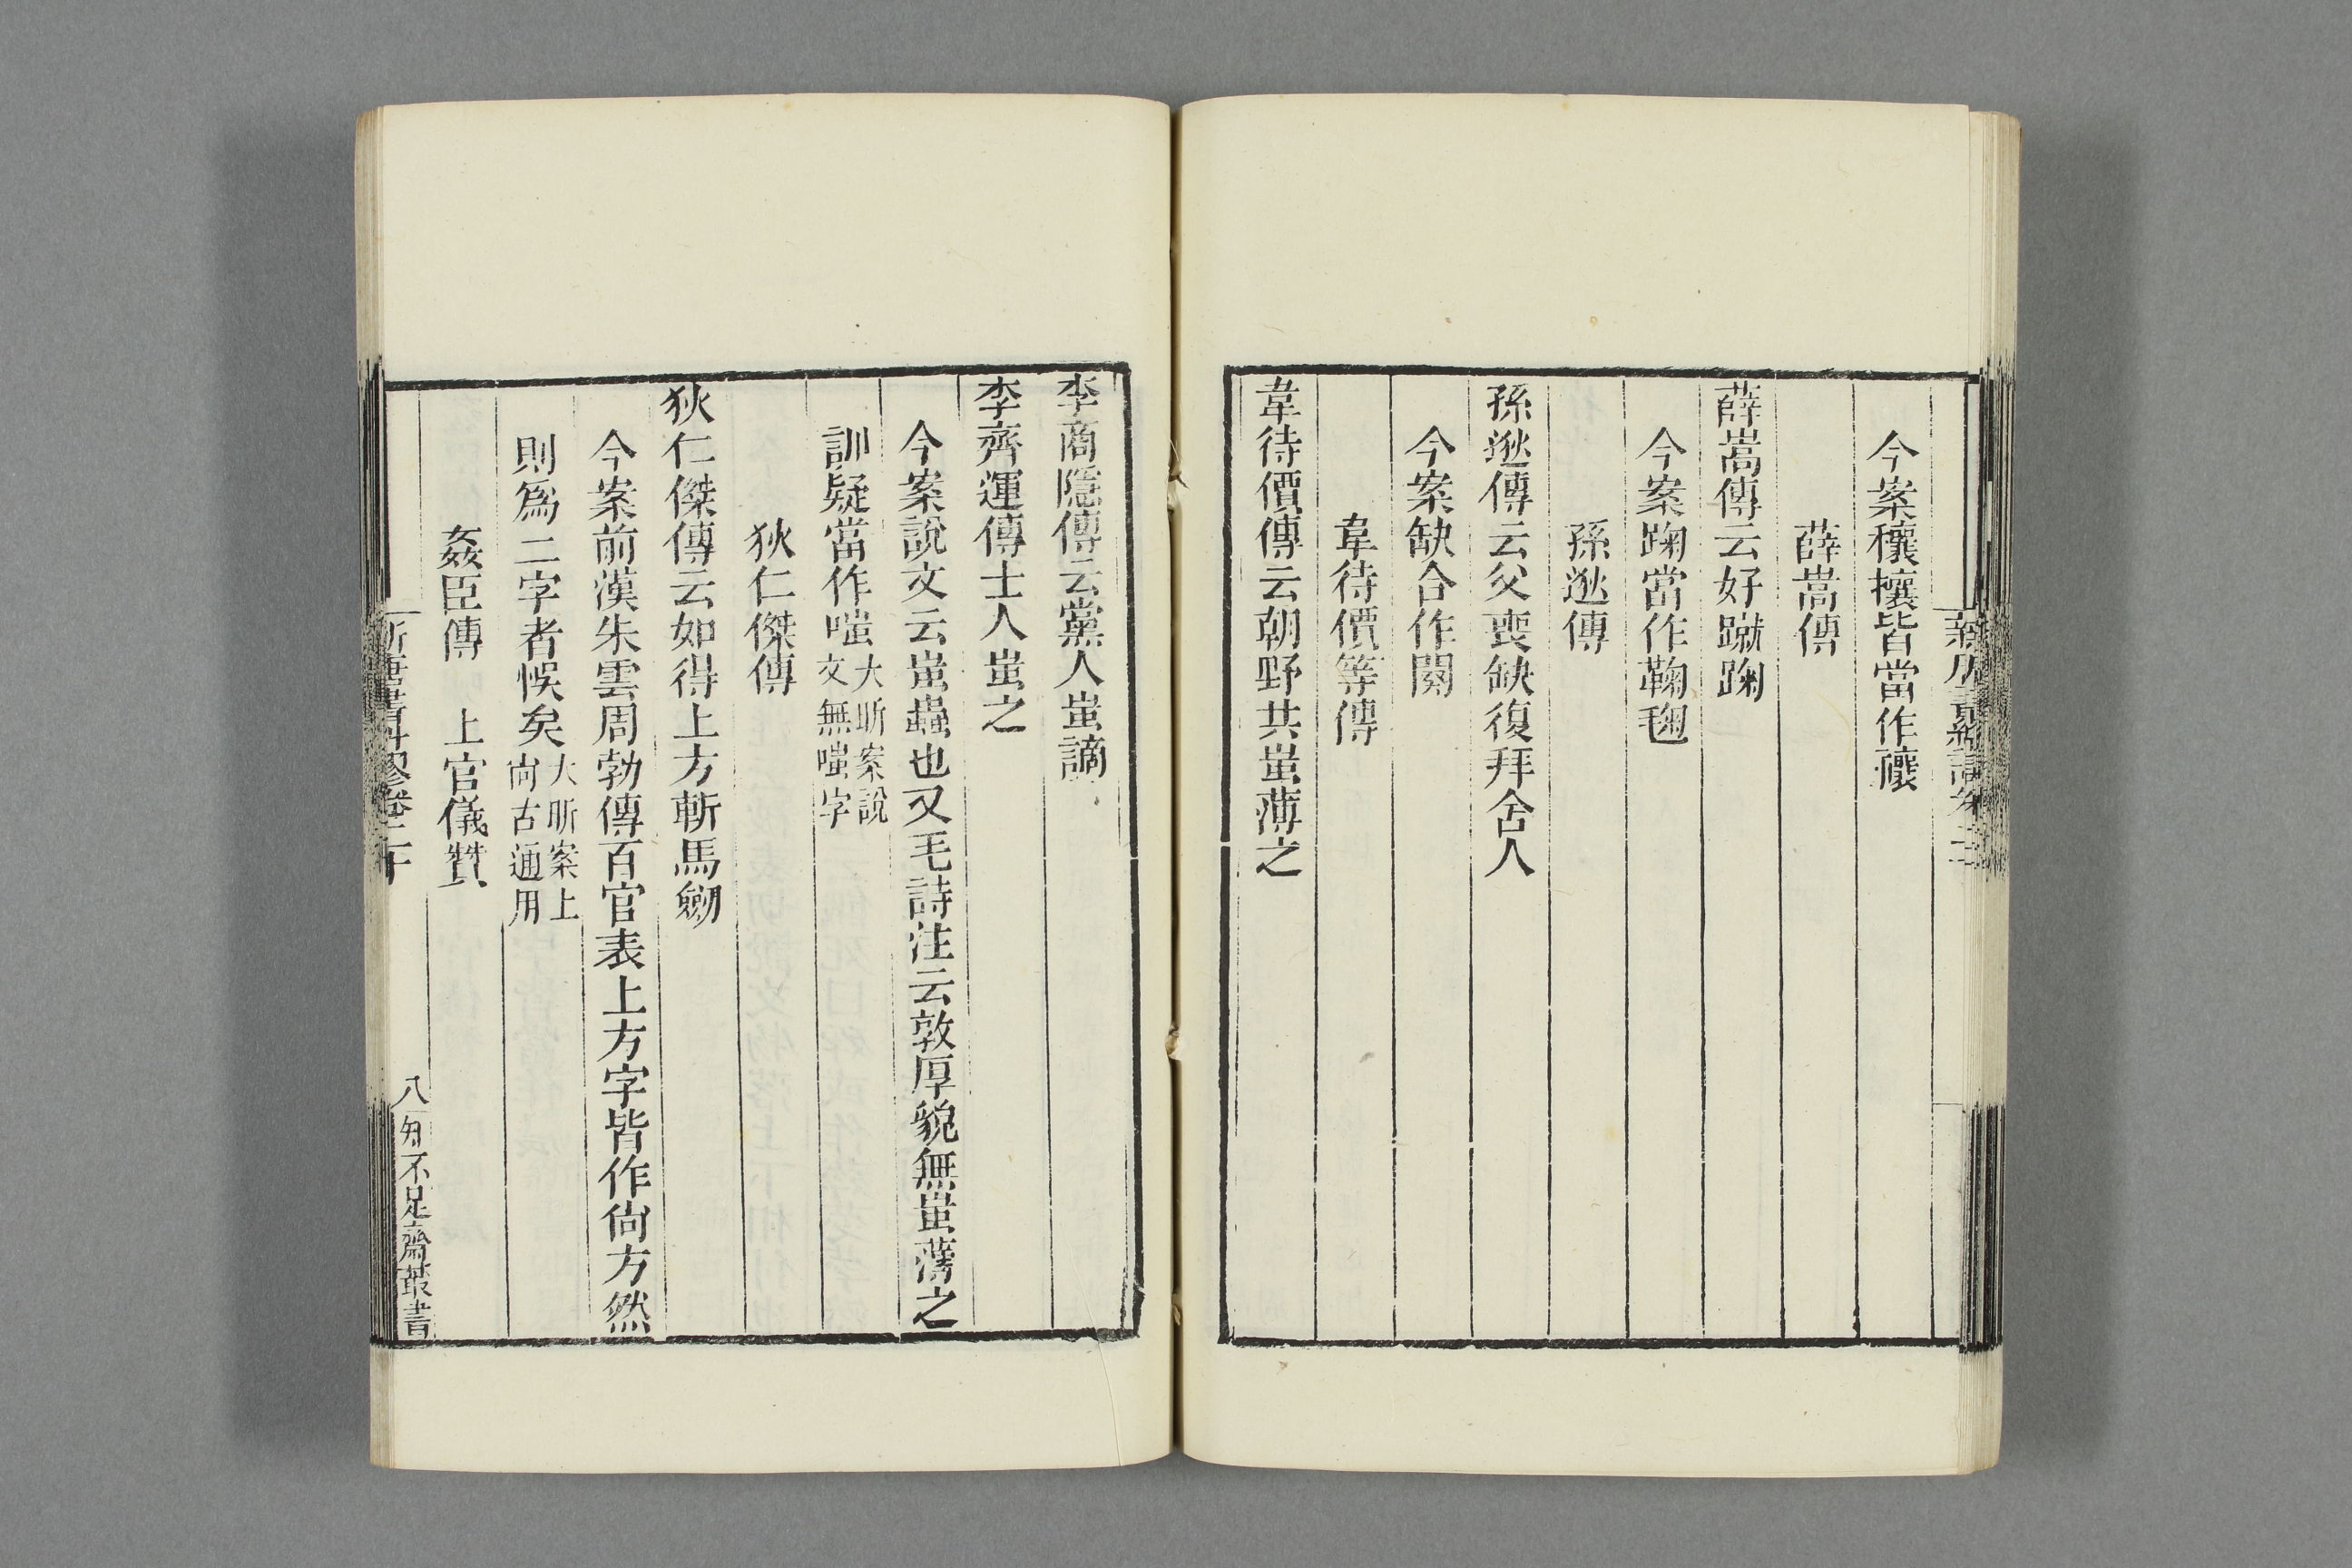 今案穰攘皆當作禳
薛嵩傳
薛嵩傳云好蹴踘
今案踘當作鞠毱
孫逖傳
孫逖傳云父喪缺復拜舍人
今案缺合作闋
韋待價等傳
韋待價傳云朝野共蚩薄之
李商隱傳云黨人蚩謫
李齊運傳士人蚩之
今案說文云蚩蟲也又毛詩注云敦厚貌無蚩薄之
訓疑當作嗤大昕案說文無嗤字
狄仁傑傳
狄仁傑傳云如得上方斬馬劒
今案前漢朱雲周勃傳百官表上方字皆作尙方然
則爲二字者悞矣大昕案上尙古通用
姦臣傳 上官儀贊
八 知不足齋叢書